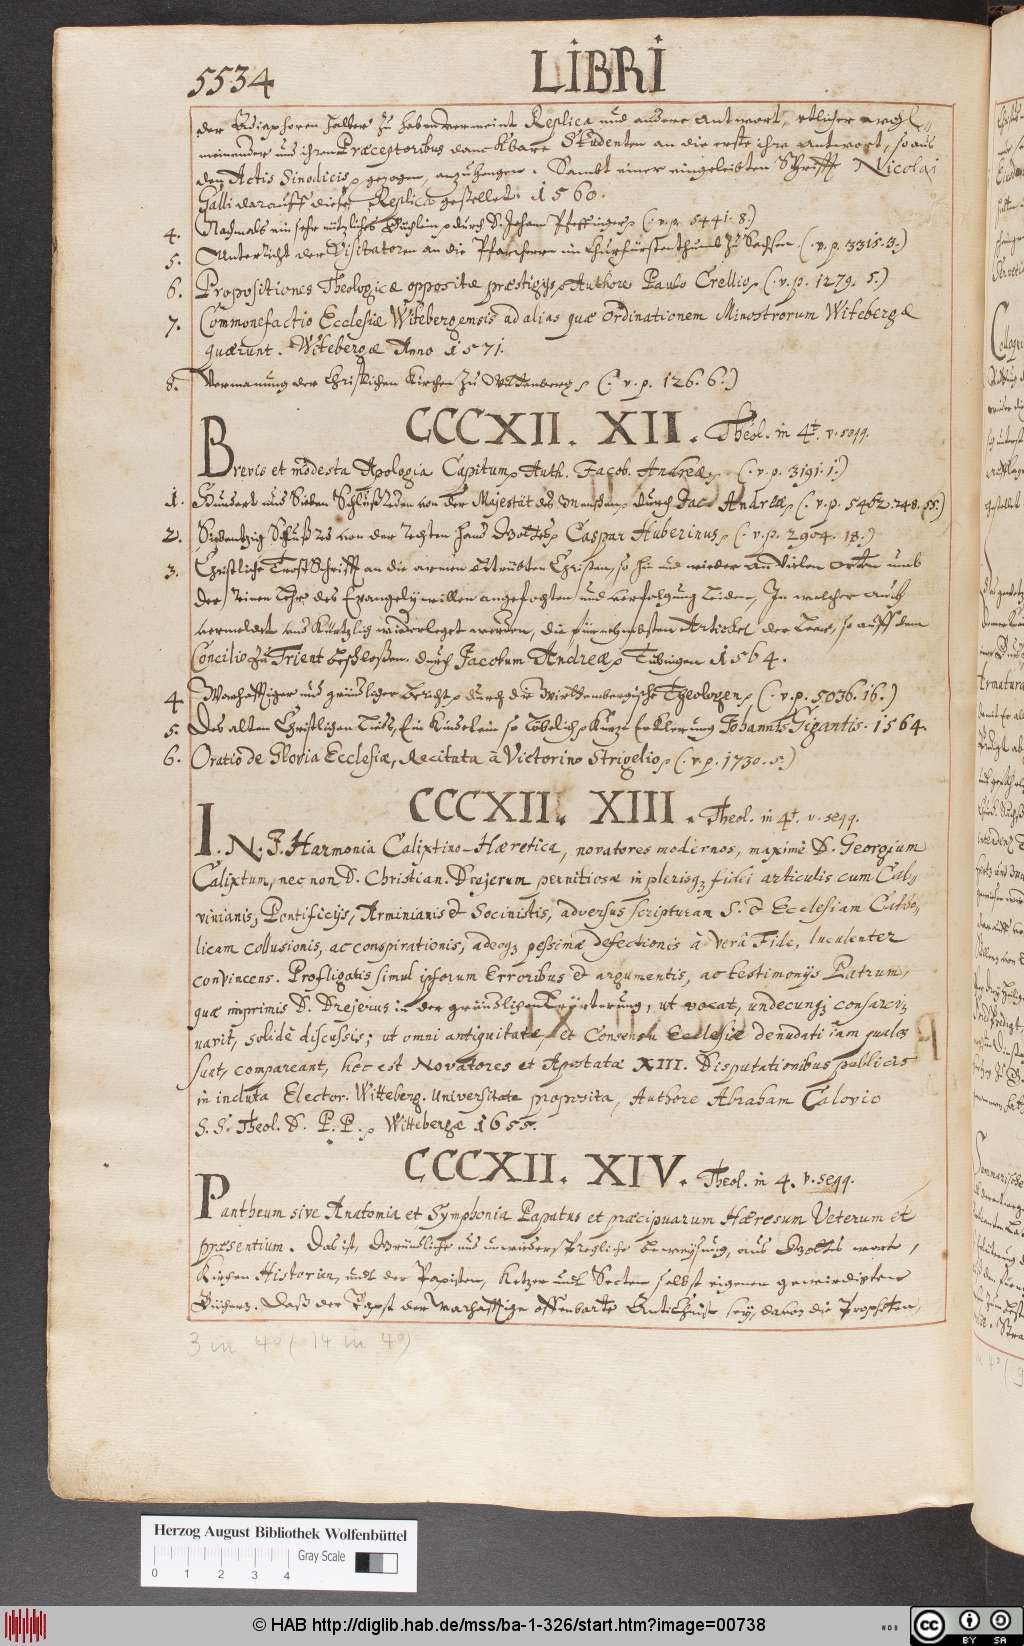 5534
LIBRI
der Adiaphoren halber zu haben vermeint Replica und andere Antwort, etlicher
und ihrem Præceptoribus danckbare Studenten an die erste ihre antwort, so aus
den Actis Sinodicis, gezogen, anzuhengen. Sambt einer eingeleibten Schrifft Nicolai
Galli darauff dieser Replica gestellet. 1560.
4. Nachmals ein sehr nützliches Büchlein durch D. Johann Pfeffinger, (. v. p. 5441. 8.)
5. Unterricht der Visitatorn an die Pfarrherrn im Churfürstenthumb zu Sachsen (. v. p. 3315. 3.)
6. Propositiones Theologicæ oppositæ præstigijs, Authore Paulo Crellio, (. v. p. 1279. 5.)
7. Commonefactio Ecclesiæ Witebergensis ad alias quæ ordinationem Minostrorum Witebergæ
quærunt. Witebergæ Anno 1571.
8. Vermanung der Christlichen Kirchen zu Wittenberg, (. v. p. 126. 6.)
CCCXII. XII. Theol. in 4t. v. seqq.
Brevis et modesta Apologia Capitum, Auth. Jacob. Andreæ, (. v. p. 3191. 1.)
1. Hundert und Sieben Schlußreden von der Majestät des Menschen, durch Jac. Andreæ, (. v. p. 5462. 248. 55.)
2. Siebentzig Schlußreden von der rechten Hand Gottes, Caspar Huberinus, (. v. p. 2904. 18.)
3. Christliche Trost Schrifft an die armen betrübten Christen, so hin und wieder an vielen Orten umb
der reinen Lehr des Evangelij willen angefochten und verfolgung leiden, In welcher auch
vermeldet und Kürtzlich widerleget werden, die fürnehmbsten Artickel der Lere, so auff dem
Concilio zu Trient beschloßen. durch Jacobum Andreæ, Tübingen 1564.
4. Warhafftiger und gründlicher bericht, durch die Wirtembergische Theologen, (. v. p. 5036. 16.)
5. Des alten Christlichen Lieds, Ein Kindelein so löbelich, Kurze Erklerung Johannis Gigantis. 1564.
6. Oratio de Gloria Ecclesiæ, Recitata à Victorino Strigelio, (. v. p. 1730. 5.)
CCCXII. XIII. Theol. in 4t. v. seqq.
I. N. J. Harmonia Calixtino-Hæretica, novatores modernos, maximè D. Georgium
Calixtum, nec non D. Christian. Drejerum pernitiosæ in plerisq; fidei articulis cum Cal-
vinianis, Pontificijs, Arminianis & Socinistis, adversus scripturam S. & Ecclesiam Catho-
licam collusionis, ac conspirationis, adeoq; peßimæ defectionis à verâ Fide, luculenter
convincens. Profligatis simul ipsorum Erroribus & argumentis, ac testimonijs Patrum,
quæ imprimis D. Drejerus in der gründlichen Erörterung, ut vocat, undecunq; consarci-
navit, solidè discussis; ut omni antiquitatæ, et Consensu Ecclesiæ denudati iam quales
sunt, compareant, hoc est Novatores et Apostatæ XIII. Disputationibus publicis
in incluta Elector. Witteberg. Universitate proposita, Authore Abraham Calovio
S. S. Theol. D. P. P., Wittebergæ 1655.
CCCXII. XIV. Theol. in 4. v. seqq.
Pantheum sive Anatomia et Symphonia Papatus et præcipuarum Hæresum Veterum et
præsentium. Das ist, Gründliche und unwiedersprechliche beweysung, aus Gottes wort,
Kirchen Historien, und der Papisten, Ketzer und Secten selbst eigenen
Büchern. Daß der Papst der warhafftige offenbarte Antichrist sey, davon die Propheten,
3 in 4° ( 14 in 4°)
Herzog August Bibliothek Wolfenbüttel
Gray Scale
0 1 2 3 4
© HAB http://diglib.hab.de/mss/ba-1-326/start.htm?image=00738
cc BY SA